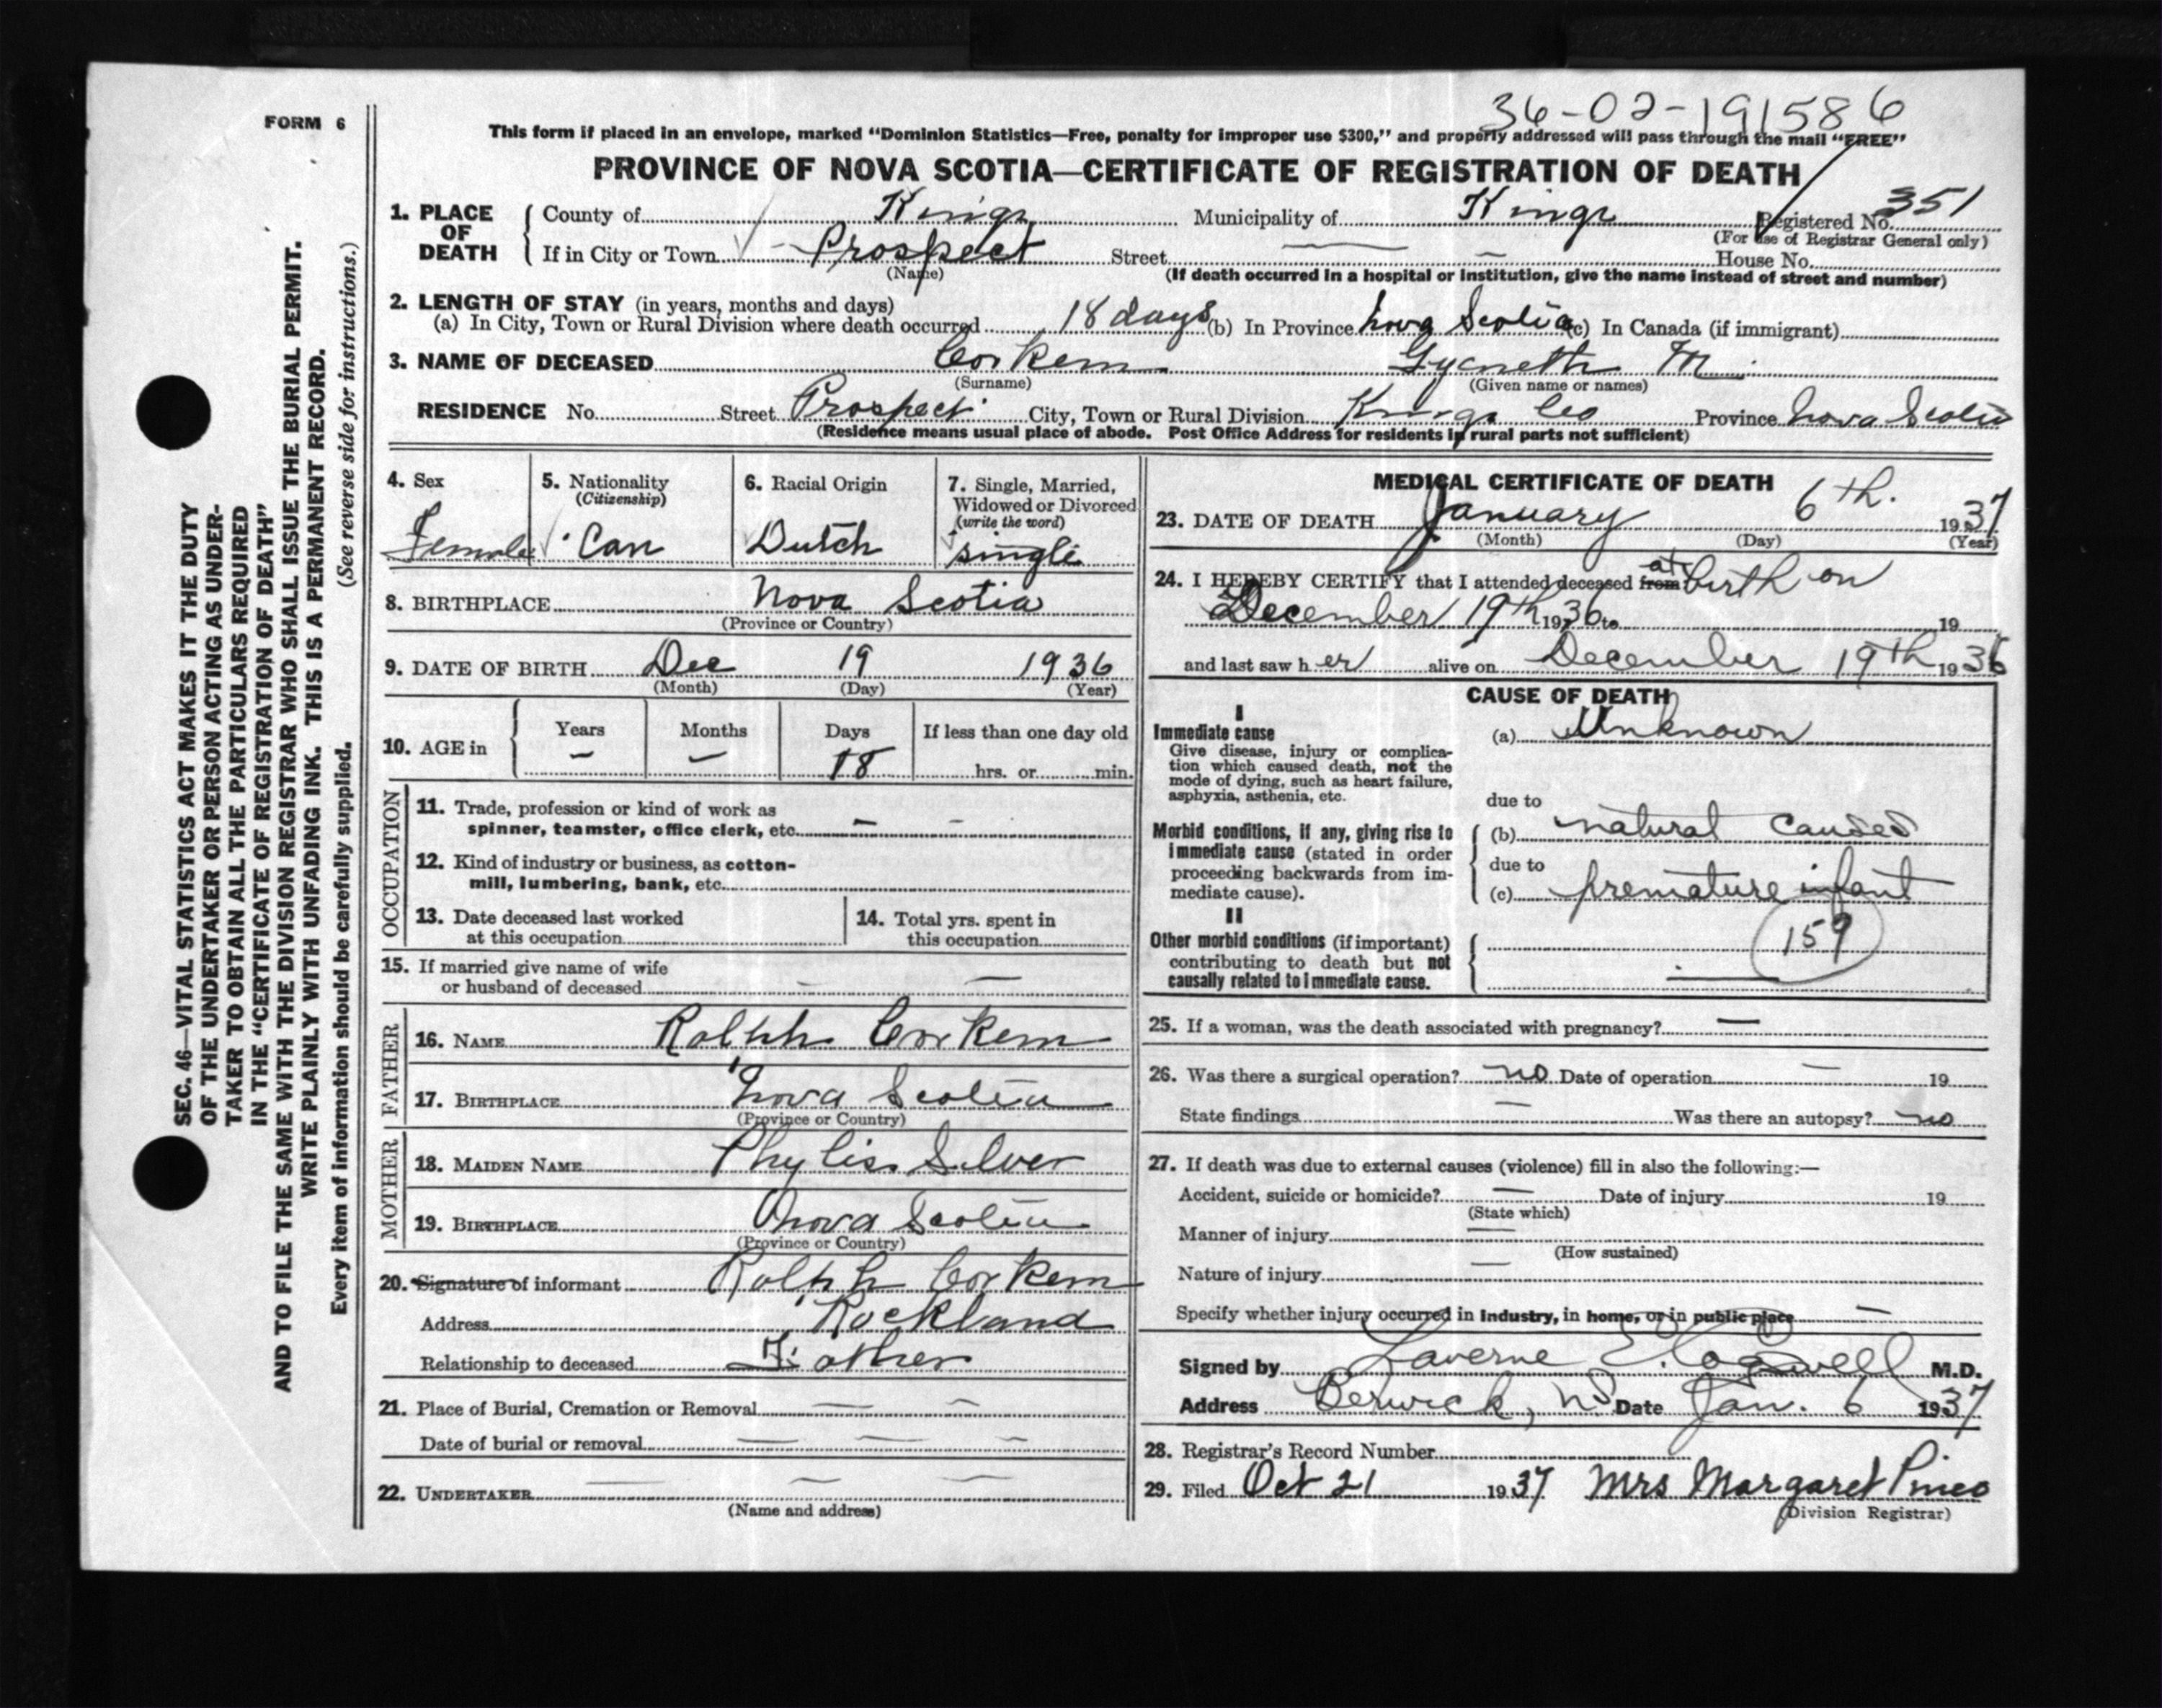 36-02-191586
FORM 6
This form if placed in an envelope, marked “Dominion Statistics—Free, penalty for improper use $300,” and properly addressed will pass through the mail “FREE”
PROVINCE OF NOVA SCOTIA—CERTIFICATE OF REGISTRATION OF DEATH
1. PLACE OF DEATH County of Kings Municipality of Kings Registered No. 351
(For use of Registrar General only)
If in City or Town Prospect Street — — House No.
(Name) (If death occurred in a hospital or institution, give the name instead of street and number)
2. LENGTH OF STAY (in years, months and days)
(a) In City, Town or Rural Division where death occurred 18 days (b) In Province Nova Scotia (c) In Canada (if immigrant)
3. NAME OF DECEASED Corkem Gyneth M.
(Surname) (Given name or names)
RESIDENCE No. Street Prospect City, Town or Rural Division Kings Co Province Nova Scotia
(Residence means usual place of abode. Post Office Address for residents in rural parts not sufficient)
4. Sex Female
5. Nationality (Citizenship) Can
6. Racial Origin Dutch
7. Single, Married, Widowed or Divorced (write the word) single
8. BIRTHPLACE Nova Scotia
(Province or Country)
9. DATE OF BIRTH Dec 19 1936
(Month) (Day) (Year)
10. AGE in Years — Months — Days 18 If less than one day old
hrs. or min.
OCCUPATION
11. Trade, profession or kind of work as
spinner, teamster, office clerk, etc. — -
12. Kind of industry or business, as cotton-
mill, lumbering, bank, etc.
13. Date deceased last worked
at this occupation
14. Total yrs. spent in
this occupation
15. If married give name of wife
or husband of deceased — —
FATHER
16. NAME Ralph Corkem
17. BIRTHPLACE Nova Scotia
(Province or Country)
MOTHER
18. MAIDEN NAME Phylis Silver
19. BIRTHPLACE Nova Scotia
(Province or Country)
20. Signature of informant Ralph Corkem
Address Rockland
Relationship to deceased Father
21. Place of Burial, Cremation or Removal — —
Date of burial or removal — — —
22. UNDERTAKER — — —
(Name and address)
MEDICAL CERTIFICATE OF DEATH
23. DATE OF DEATH January 6th. 1937
(Month) (Day) (Year)
24. I HEREBY CERTIFY that I attended deceased from at birth on
December 19th 1936 to 19
and last saw her alive on December 19th 1936
CAUSE OF DEATH
I
Immediate cause
Give disease, injury or complica-
tion which caused death, not the
mode of dying, such as heart failure,
asphyxia, asthenia, etc.
(a) Unknown
due to
Morbid conditions, if any, giving rise to
immediate cause (stated in order
proceeding backwards from im-
mediate cause).
(b) natural causes
due to
(c) premature infant
159
II
Other morbid conditions (if important)
contributing to death but not
causally related to immediate cause.
25. If a woman, was the death associated with pregnancy? —
26. Was there a surgical operation? no Date of operation — 19
State findings — Was there an autopsy? no
27. If death was due to external causes (violence) fill in also the following:—
Accident, suicide or homicide? — Date of injury 19
(State which)
Manner of injury —
(How sustained)
Nature of injury —
Specify whether injury occurred in industry, in home, or in public place —
Signed by Laverne Cogswell M.D.
Address Berwick, N.S. Date Jan. 6 1937
28. Registrar's Record Number
29. Filed Oct 21 1937 Mrs Margaret Pineo
(Division Registrar)
SEC. 46—VITAL STATISTICS ACT MAKES IT THE DUTY
OF THE UNDERTAKER OR PERSON ACTING AS UNDER-
TAKER TO OBTAIN ALL THE PARTICULARS REQUIRED
IN THE “CERTIFICATE OF REGISTRATION OF DEATH”
AND TO FILE THE SAME WITH THE DIVISION REGISTRAR WHO SHALL ISSUE THE BURIAL PERMIT.
WRITE PLAINLY WITH UNFADING INK. THIS IS A PERMANENT RECORD.
Every item of information should be carefully supplied. (See reverse side for instructions.)